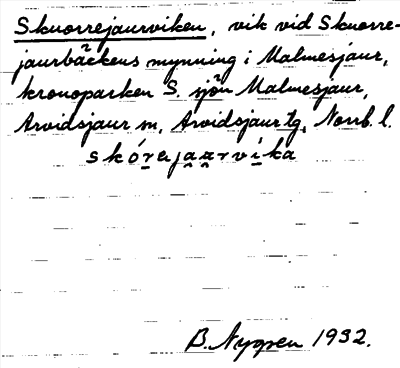 Skuorrejaurviken, vik vid Skuorre-
jaurbäckens mynning i Malmesjaur,
kronoparken S. sjön Malmesjaur,
Arvidsjaur sn, Arvidsjaur tg, Norrb. l.
skórejaarvika
B. Nygren 1932.